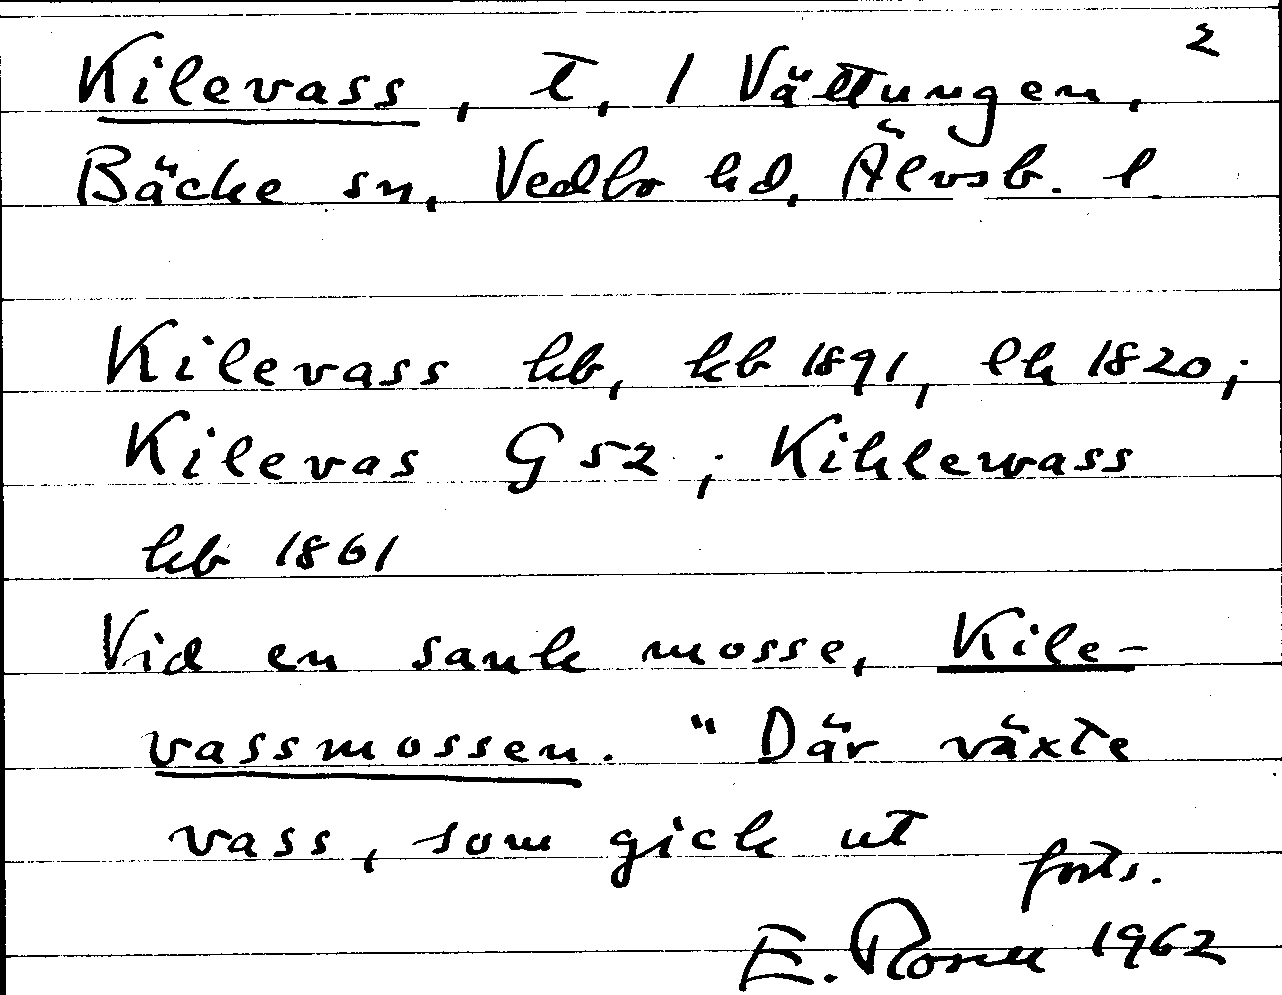 2
Kilevass, t, / Vättungen,
Bäcke sn, Vedbo hd, Älvsb. l
Kilevass hb, kb 1891, lh 1820;
Kilevas G 52; Kihlewass
kb 1861
Vid en sank mosse, Kile-
vassmossen. "Där växte
vass, som gick ut
forts.
E. Rosell 1962